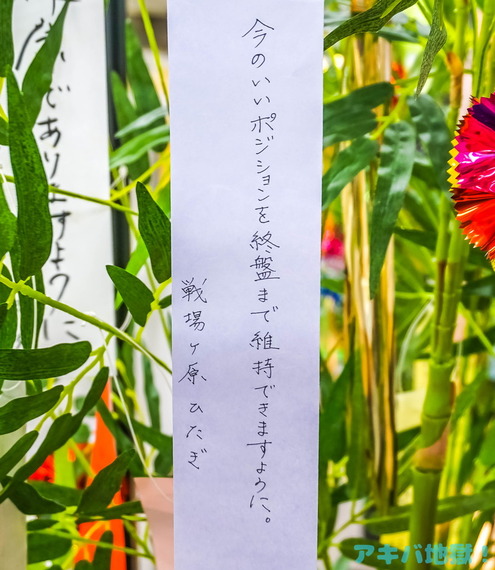 今のいいポジションを終盤まで維持できますように。
戦場ヶ原 ひたぎ
でありますように
アキバ地獄!